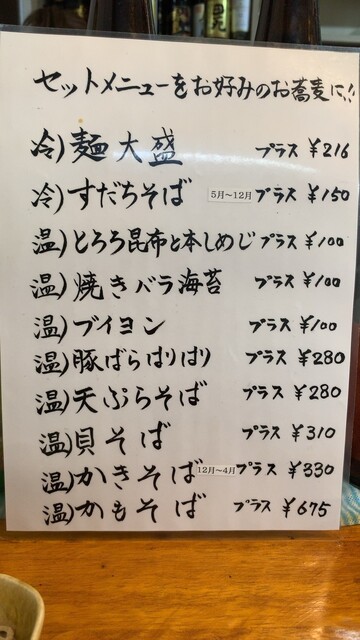 セットメニューをお好みのお蕎麦に!!
冷)麺大盛 プラス ¥216
冷)すだちそば 5月～12月 プラス ¥150
温)とろろ昆布と本しめじ プラス ¥100
温)焼きバラ海苔 プラス ¥100
温)ブイヨン プラス ¥100
温)豚ばらはりはり プラス ¥280
温)天ぷらそば プラス ¥280
温)貝そば プラス ¥310
温)かきそば 12月～4月 プラス ¥330
温)かもそば プラス ¥675